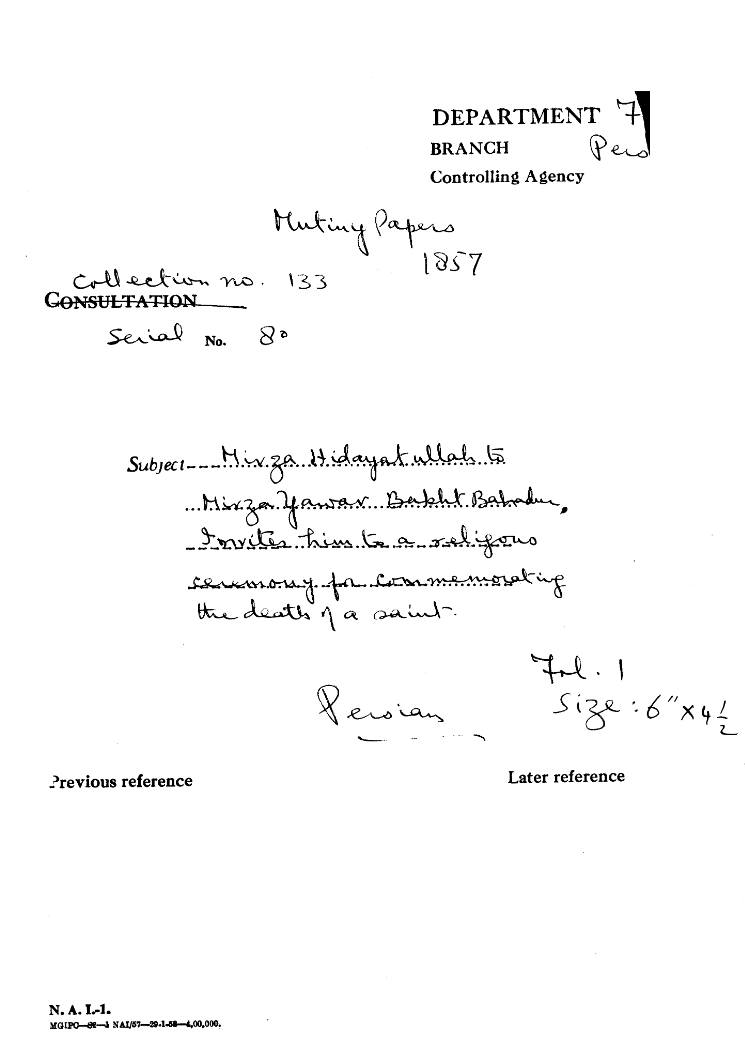 DEPARTMENT F
BRANCH Pers
Controlling Agency
Mutiny Papers
1857
Collection no. 133
CONSULTATION
Serial No. 80
Subject Mirza Hidayat ullah to
Mirza Yawar Bakht Bahadur,
Invites him to a religous
ceremony for commemorating
the death of a saint.
Fol. 1
Persian Size: 6" x 4 1/2
Previous reference Later reference
N. A. I.-1.
MGIPC—S2—1 NAI/57—29-1-58—4,00,000.